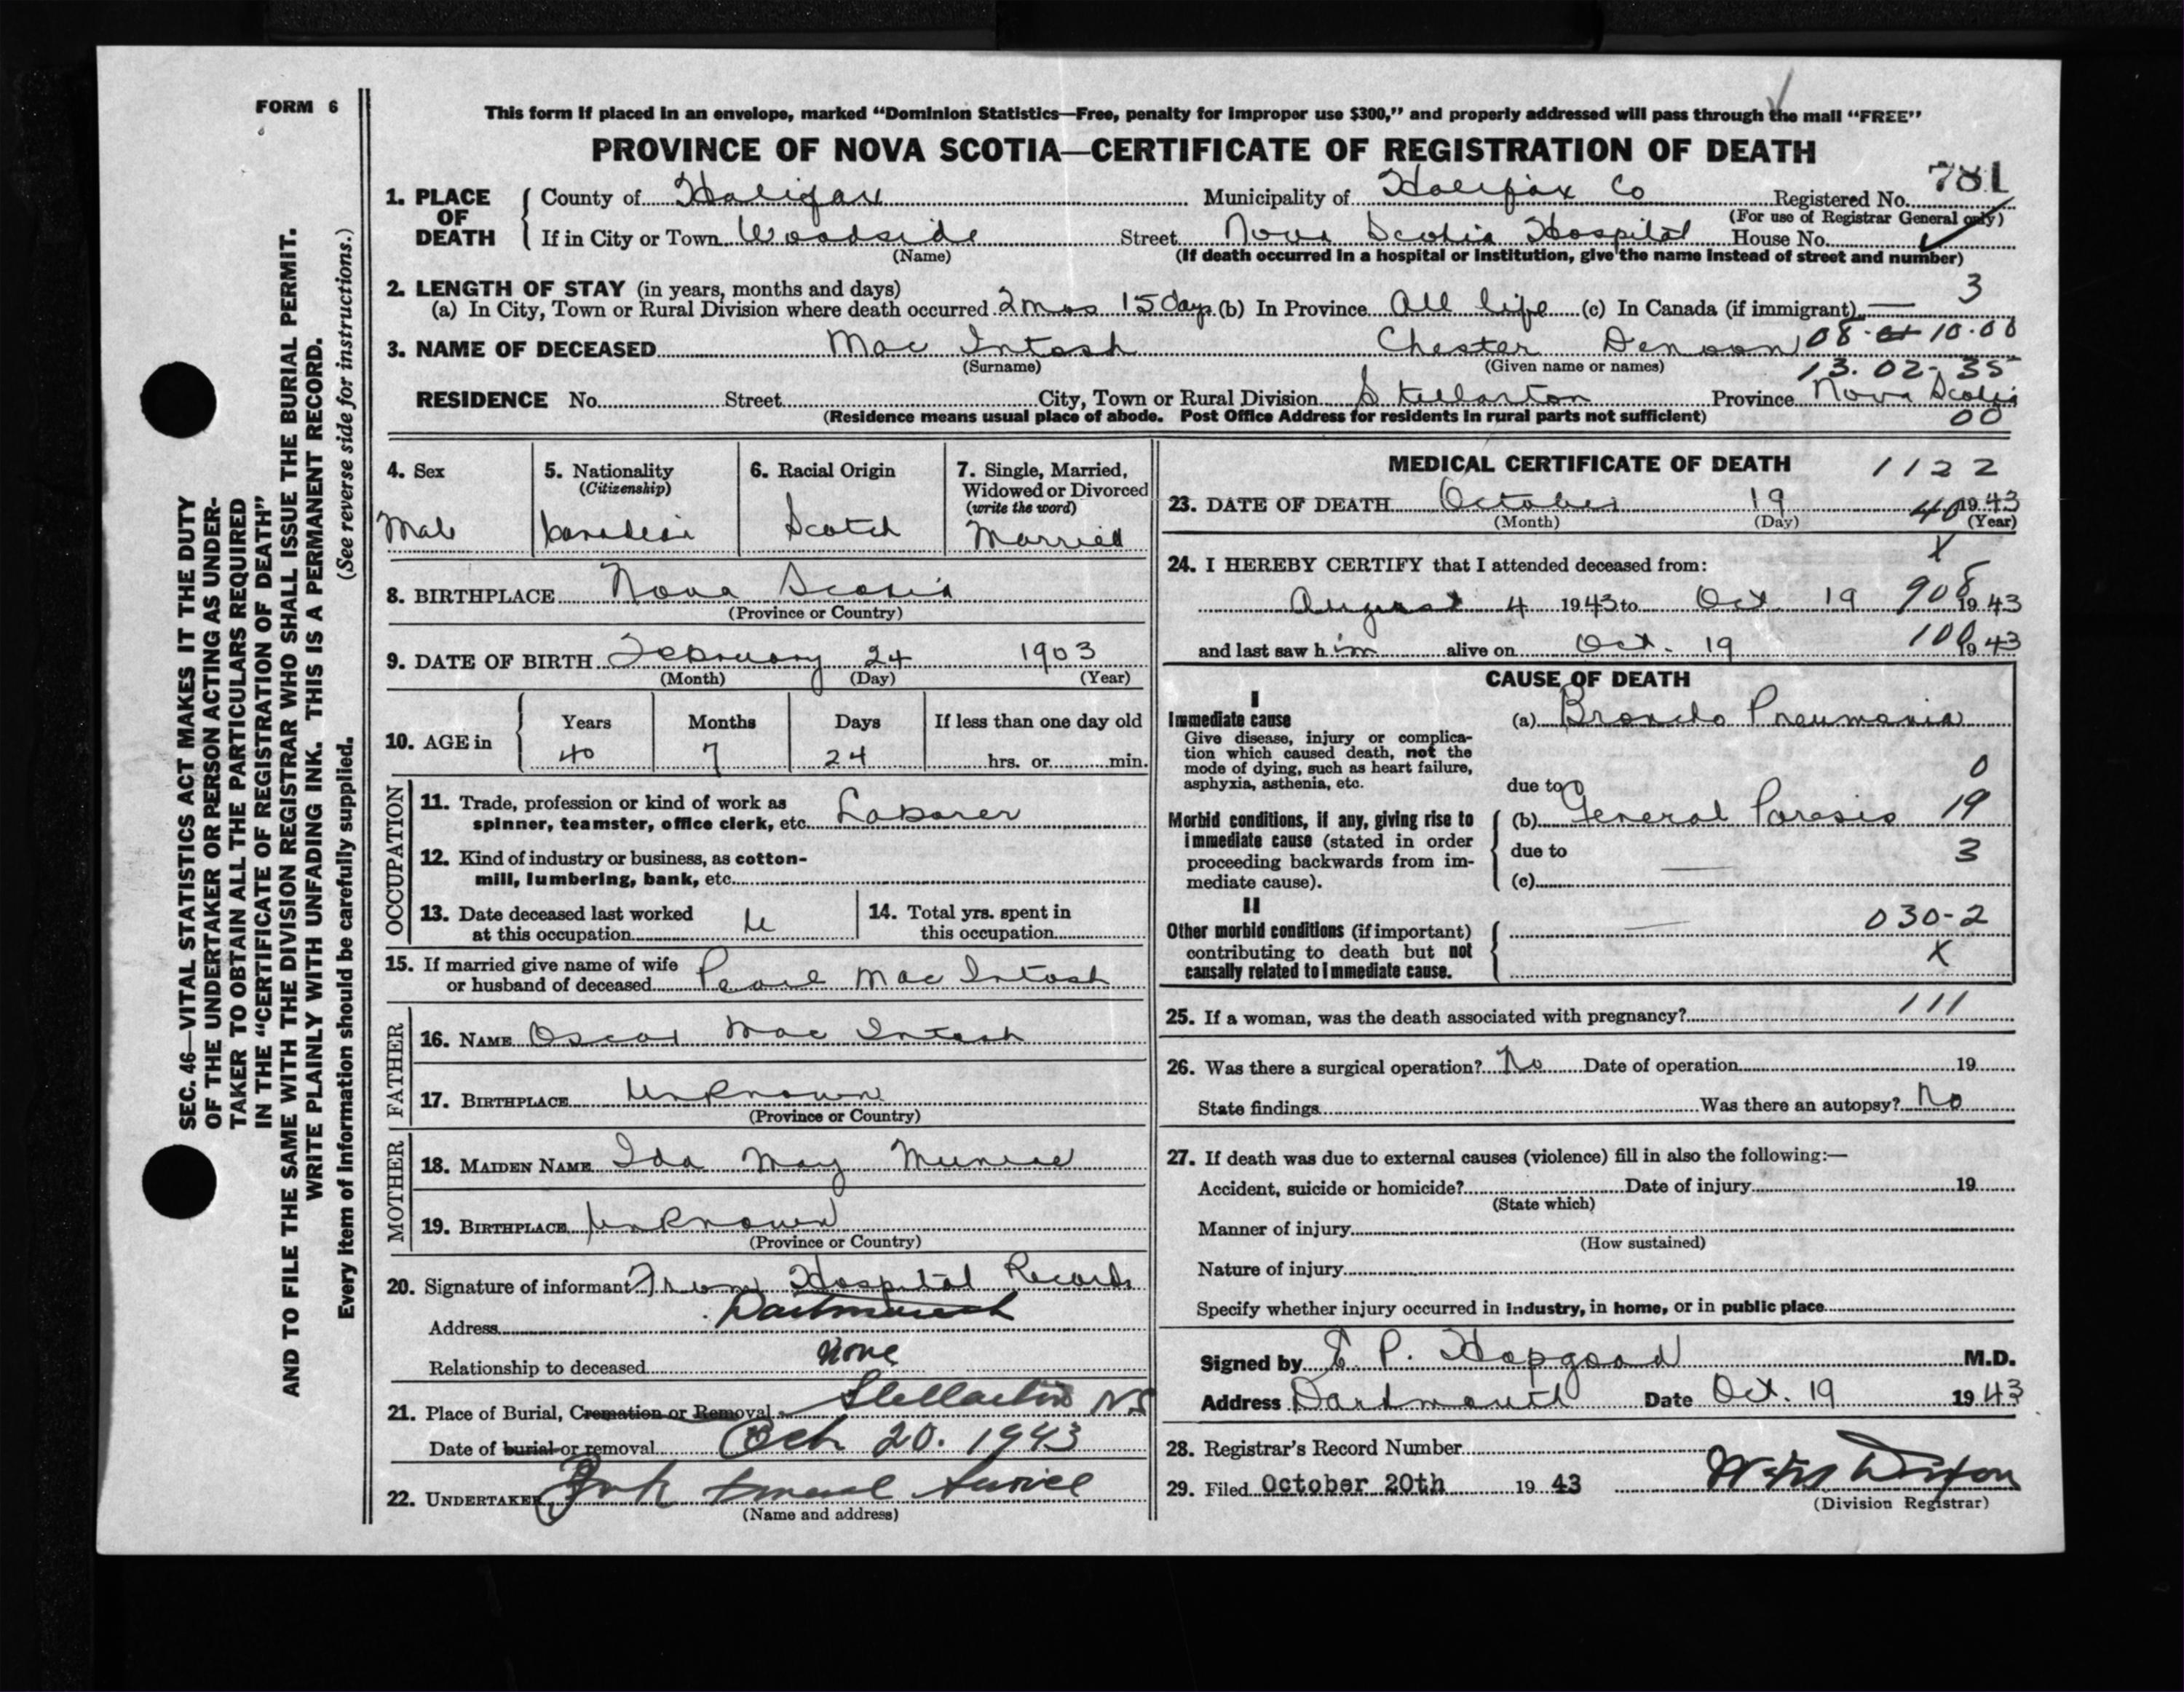 FORM 6
This form if placed in an envelope, marked “Dominion Statistics—Free, penalty for improper use $300,” and properly addressed will pass through the mail “FREE”
PROVINCE OF NOVA SCOTIA—CERTIFICATE OF REGISTRATION OF DEATH
781
1. PLACE OF DEATH { County of Halifax Municipality of Halifax Co Registered No.
(For use of Registrar General only)
If in City or Town Woodside Street Nova Scotia Hospital House No.
(Name) (If death occurred in a hospital or institution, give the name instead of street and number)
2. LENGTH OF STAY (in years, months and days) 3
(a) In City, Town or Rural Division where death occurred 2 mos 15 days (b) In Province All life (c) In Canada (if immigrant) —
3. NAME OF DECEASED Mac Intosh Chester Denoon 08. 10.00
(Surname) (Given name or names) 13.02-35
RESIDENCE No. Street City, Town or Rural Division Stellarton Province Nova Scotia
(Residence means usual place of abode. Post Office Address for residents in rural parts not sufficient) 00
4. Sex 5. Nationality (Citizenship) 6. Racial Origin 7. Single, Married, Widowed or Divorced (write the word)
Male Canadian Scotch Married
8. BIRTHPLACE Nova Scotia
(Province or Country)
9. DATE OF BIRTH February 24 1903
(Month) (Day) (Year)
10. AGE in { Years Months Days If less than one day old
40 7 24 hrs. or min.
OCCUPATION
11. Trade, profession or kind of work as
spinner, teamster, office clerk, etc. Laborer
12. Kind of industry or business, as cotton-
mill, lumbering, bank, etc.
13. Date deceased last worked at this occupation U 14. Total yrs. spent in this occupation
15. If married give name of wife
or husband of deceased Pearl Mac Intosh
FATHER
16. NAME Oscar Mac Intosh
17. BIRTHPLACE Unknown
(Province or Country)
MOTHER
18. MAIDEN NAME Ida May Munroe
19. BIRTHPLACE Unknown
(Province or Country)
20. Signature of informant From Hospital Records
Address Dartmouth
Relationship to deceased None
21. Place of Burial, Cremation or Removal Stellarton NS
Date of burial or removal Oct 20. 1943
22. UNDERTAKER Funeral Service
(Name and address)
MEDICAL CERTIFICATE OF DEATH 1122
23. DATE OF DEATH October 19 40 1943
(Month) (Day) (Year)
X
24. I HEREBY CERTIFY that I attended deceased from:
August 4 1943 to Oct 19 908 1943
and last saw him alive on Oct. 19 100 1943
CAUSE OF DEATH
I
Immediate cause (a) Broncho Pneumonia
Give disease, injury or complica-
tion which caused death, not the
mode of dying, such as heart failure, 0
asphyxia, asthenia, etc. due to
Morbid conditions, if any, giving rise to (b) General Paresis 19
immediate cause (stated in order due to 3
proceeding backwards from im-
mediate cause). (c) —
II
Other morbid conditions (if important) — 030-2
contributing to death but not X
causally related to immediate cause.
25. If a woman, was the death associated with pregnancy? 111
26. Was there a surgical operation? No Date of operation 19
State findings Was there an autopsy? No
27. If death was due to external causes (violence) fill in also the following:—
Accident, suicide or homicide? Date of injury 19
(State which)
Manner of injury
(How sustained)
Nature of injury
Specify whether injury occurred in industry, in home, or in public place
Signed by E P. Hopgood M.D.
Address Dartmouth Date Oct. 19 1943
28. Registrar's Record Number
29. Filed October 20th 1943
(Division Registrar)
SEC. 46—VITAL STATISTICS ACT MAKES IT THE DUTY
OF THE UNDERTAKER OR PERSON ACTING AS UNDER-
TAKER TO OBTAIN ALL THE PARTICULARS REQUIRED
IN THE “CERTIFICATE OF REGISTRATION OF DEATH”
AND TO FILE THE SAME WITH THE DIVISION REGISTRAR WHO SHALL ISSUE THE BURIAL PERMIT.
WRITE PLAINLY WITH UNFADING INK. THIS IS A PERMANENT RECORD.
Every item of information should be carefully supplied. (See reverse side for instructions.)